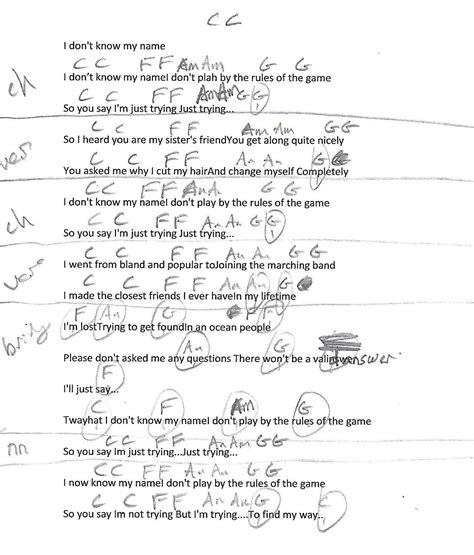 C C
I don't know my name
C C F F Am Am G G
I don't know my nameI don't plah by the rules of the game
ch
C C F F Am Am G G
So you say I'm just trying Just trying...
C C F F Am Am G G
So I heard you are my sister's friendYou get along quite nicely
ver
C C F F An An G
You asked me why I cut my hairAnd change myself Completely
C C F F G G
I don't know my nameI don't play by the rules of the game
ch
C C F F An An G G
So you say I'm just trying Just trying...
C C F F An An G G
I went from bland and popular toJoining the marching band
C C F F An An G
I made the closest friends I ever haveIn my lifetime
F An G F
I'm lostTrying to get foundIn an ocean people
An G
Please don't asked me any questions There won't be a answer.
F
I'll just say...
C F Am G
Twayhat I don't know my nameI don't play by the rules of the game
C C F F An Am G G
So you say Im just trying...Just trying...
nn
C C F F An An G G
I now know my nameI don't play by the rules of the game
C C F F An An G C
So you say Im not trying But I'm trying....To find my way..